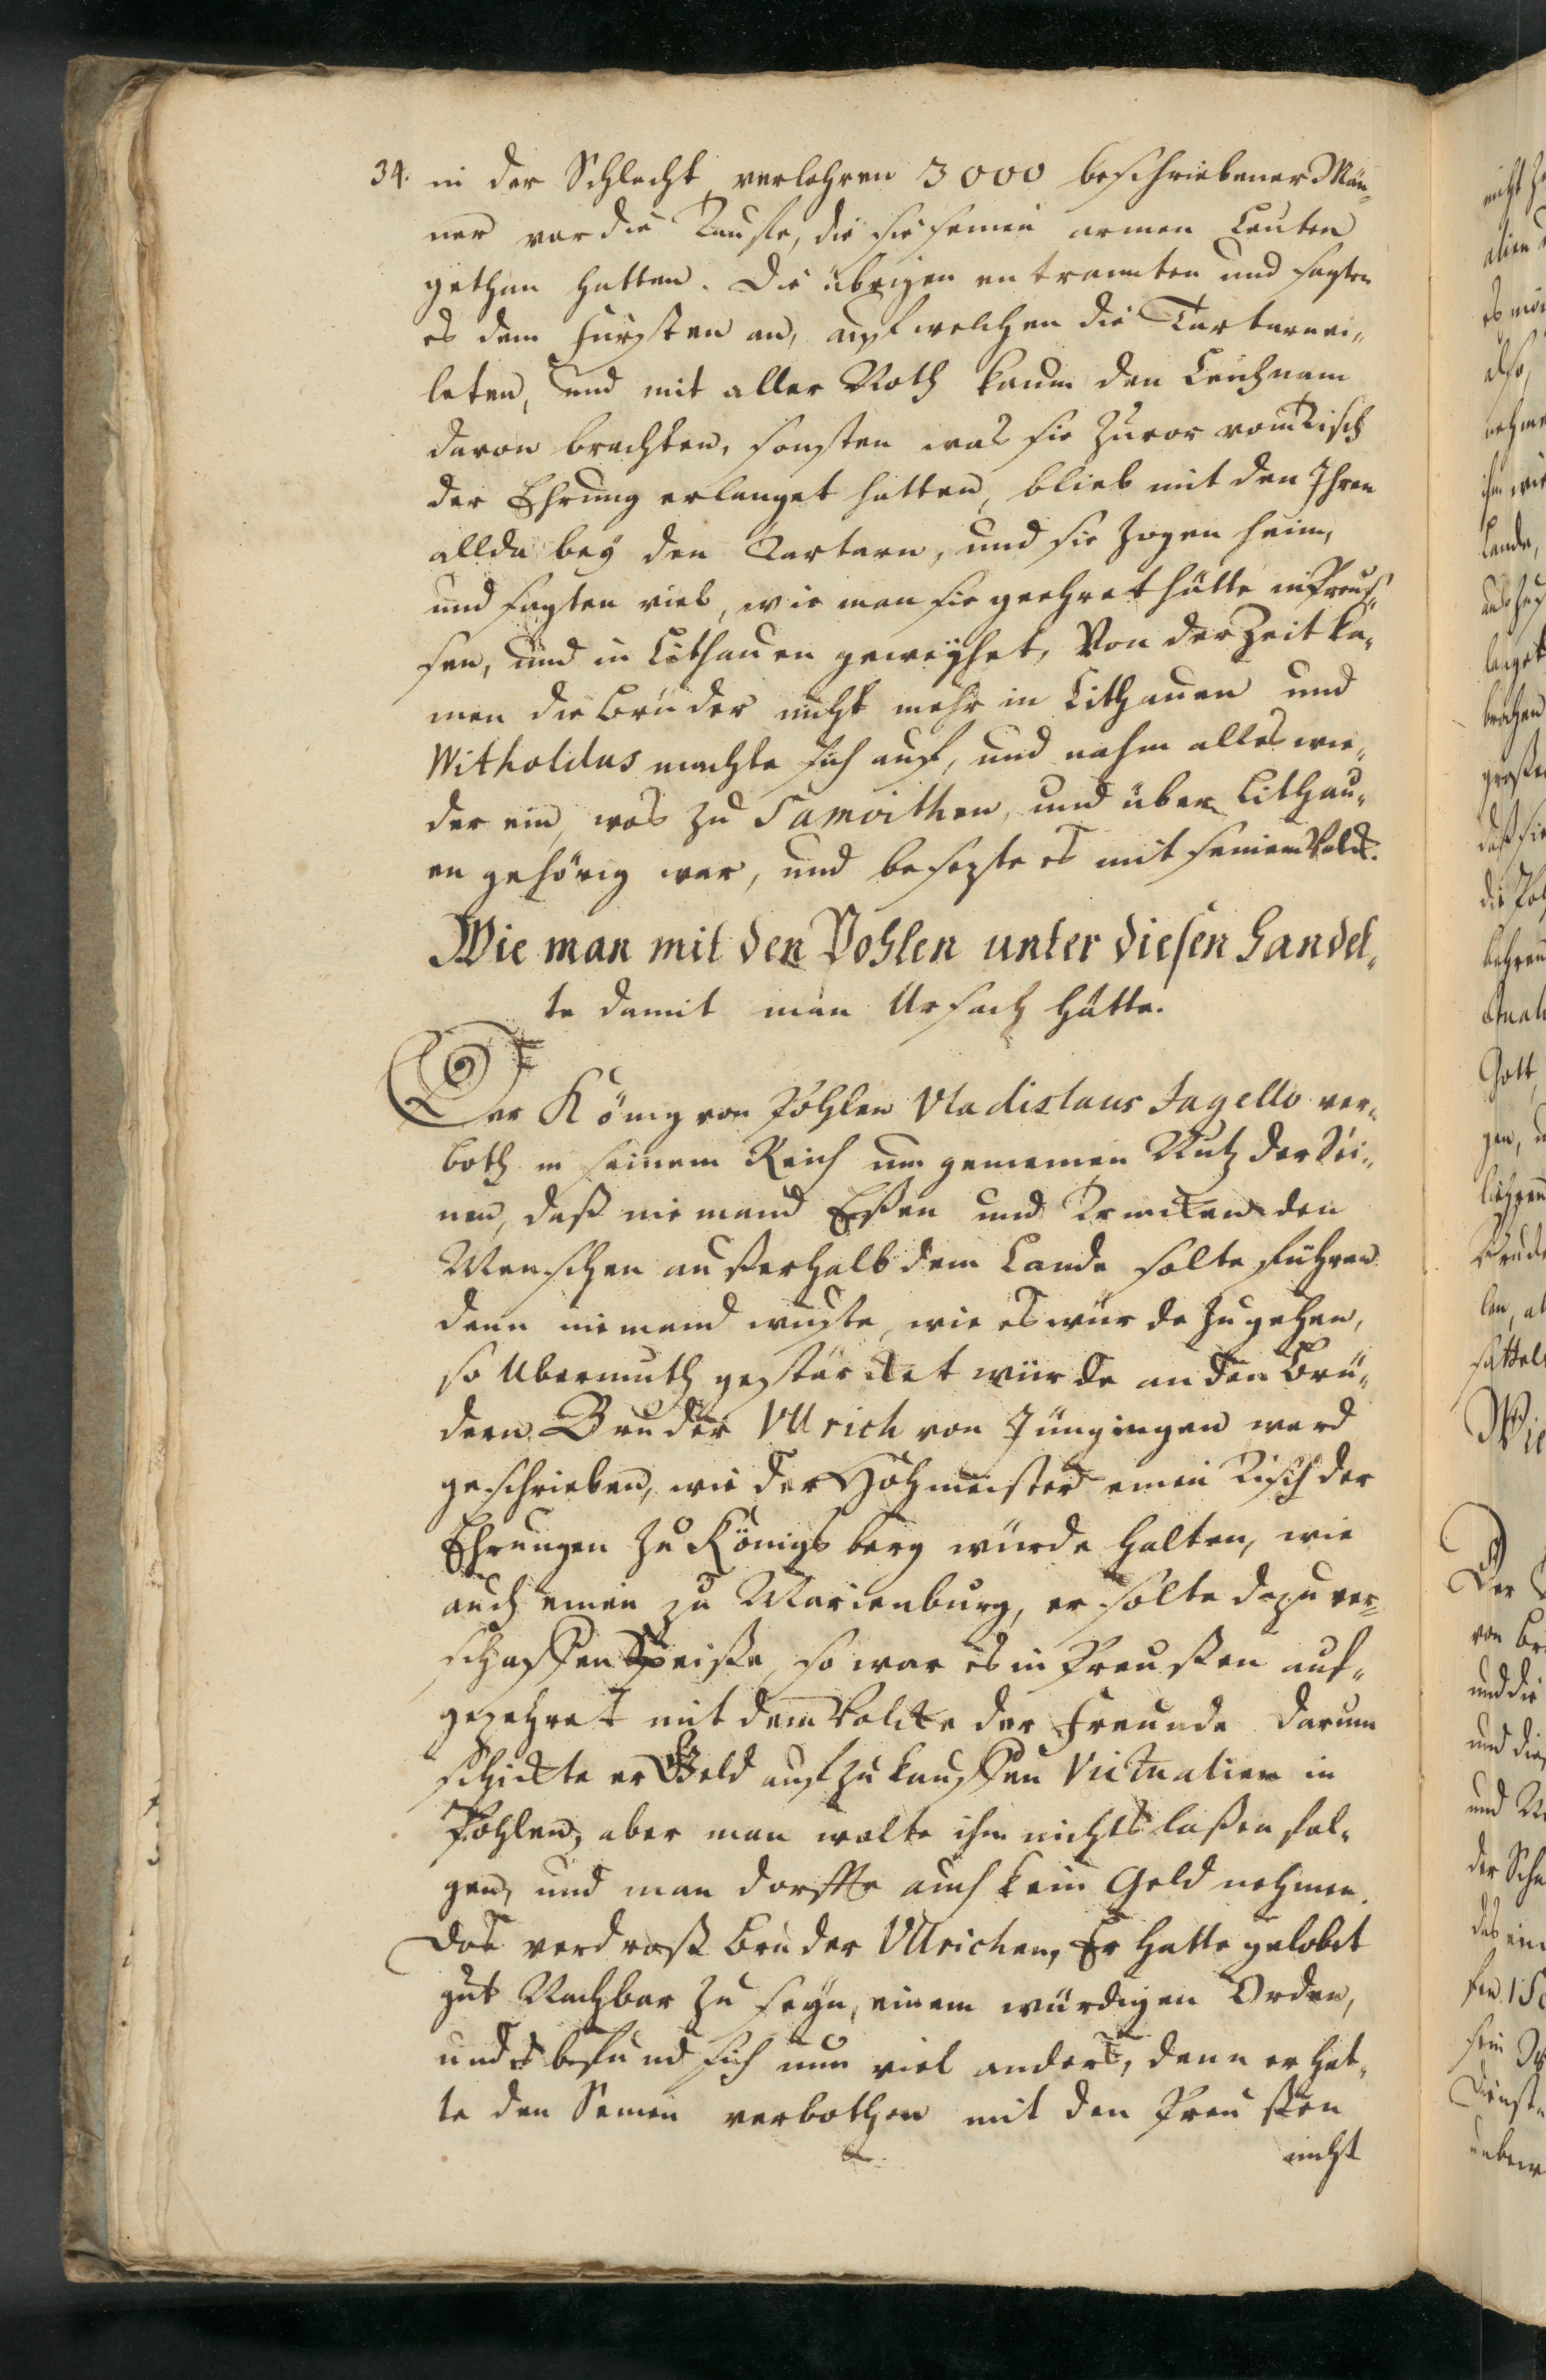 34. in der Schlacht verlohren 3000 beschriebener Män„
ner vor die Tauffe, die sie seinen armen Leuten
gethan hatten. Die übrigen entrannten und sagten
es dem Fürsten an, auf welchen die Tartaren ei„
leten, und mit aller Noth kaum den Leichnam
davon brachten, sonsten was sie zuvor vom Tisch
der Ehrung erlanget hatten, blieb mit den Ihren
allda bey den Tartarn, und sie zogen heim,
und sagten viel, wie man sie geehret hätte in Preus„
sen, und in Litthauen geweyhet, Von der Zeit ka„
men die Brüder nicht mehr in Litthauen und
Witholdus machte sich auf, und nahm alles wie„
der ein, was zu Samoithen, und über Litthau„
en gehörig war, und besezte es mit seinem Volck.
Wie man mit den Pohlen unter diesen handel„
te damit man Ursach hätte.
Der König von Pohlen Vladislaus Jagello ver„
both in seinem Reich um gemeinen Nutz der Sei„
nen, daß niemand Eßen und Trincken den
Menschen außerhalb dem Lande solte führen
denn niemand wuste, wie es würde zugehen,
so Ubermuth gestärcket würde an den Brü„
dern. Bruder Ullrich von Jüngingen ward
geschrieben, wie der Hohmeister einen Tisch der
Ehrungen zu Königsberg würde halten, wie
auch einen zu Marienburg, er solte dazu ver„
schaffen Speise, so war es in Preußen auf„
gezehret mit dem Volcke der Freunde darum
schickte er Geld auf zu kauffen Victualien in
Pohlen, aber man wolte ihm nichts laßen fol„
gen, und man dorffte auch kein Geld nehmen.
Das verdroß Bruder Ullrichen, Er hatte gelobet
gut Nachbar zu seyn, einem würdigen Orden,
und es befund sich nun viel anders, denn er hat„
te den Seinen verbothen mit den Preußen
nicht